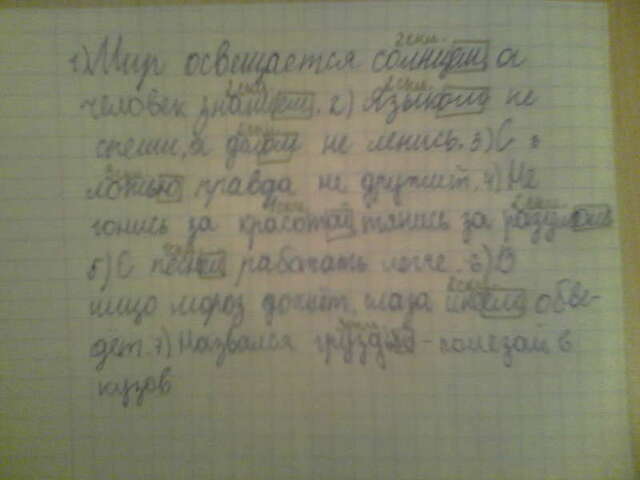 2скл.
1) Мир освещается солнцем, а
2скл. 2скл.
человек знанием. 2) Языком не
2скл.
спеши, а делом не ленись. 3) С
3скл.
ложью правда не дружит. 4) Не
1скл. 2скл.
гонись за красотой тянись за разумом
5) С песней работать легче. 6) В
2скл.
лицо мороз дохнёт, глаза инеем обве-
дёт. 7) Назвался груздем - полезай в
кузов